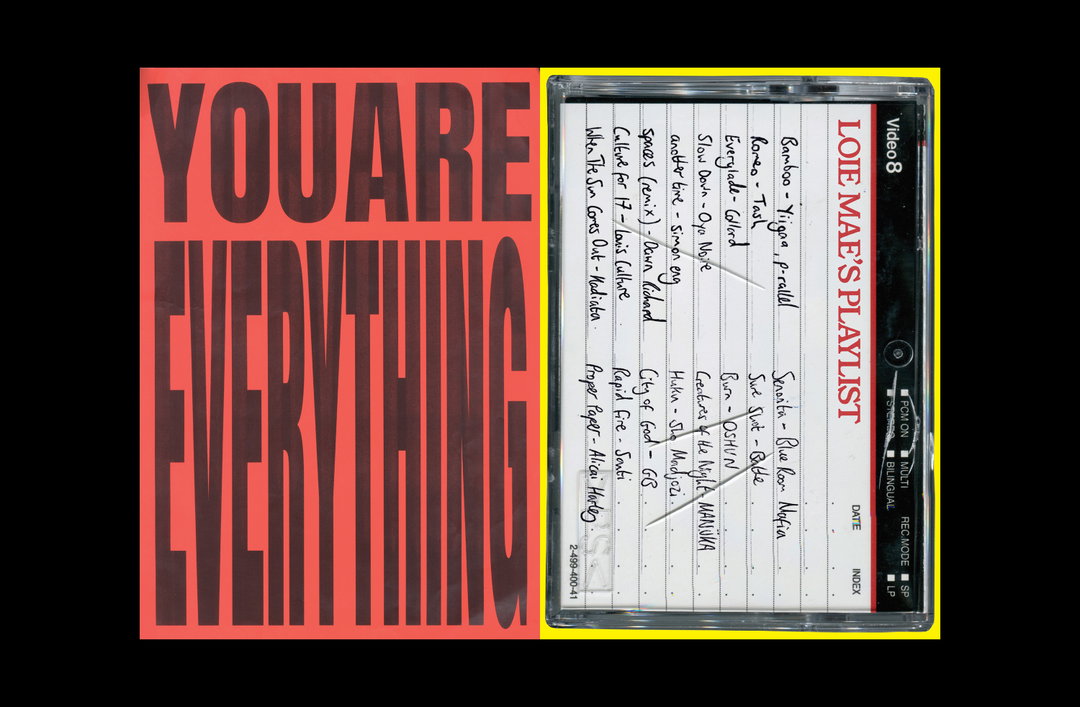 YOU ARE
EVERYTHING
Video 8
PCM ON MULTI REC MODE SP
STEREO BILINGUAL LP
LOIE MAE'S PLAYLIST
DATE INDEX
Bamboo - Yiigaa, p-rallel
Romeo - Tash
Everglade - Collard
Slow Down - Oya Noire
another time - simon eng
Spaces (remix) - Dawn Richard
Culture for 17 - Louis Culture
When The Sun Comes Out - Kadiata.
Senorita - Blue Room Mafia
Sure Shot -
Burn - OSHUN
Creatures of the Night - MANÜKA
Huku - Sho Madjozi
City of God - GB
Rapid Fire - Santi
Proper Paper - Alicai Harley
2-499-400-41